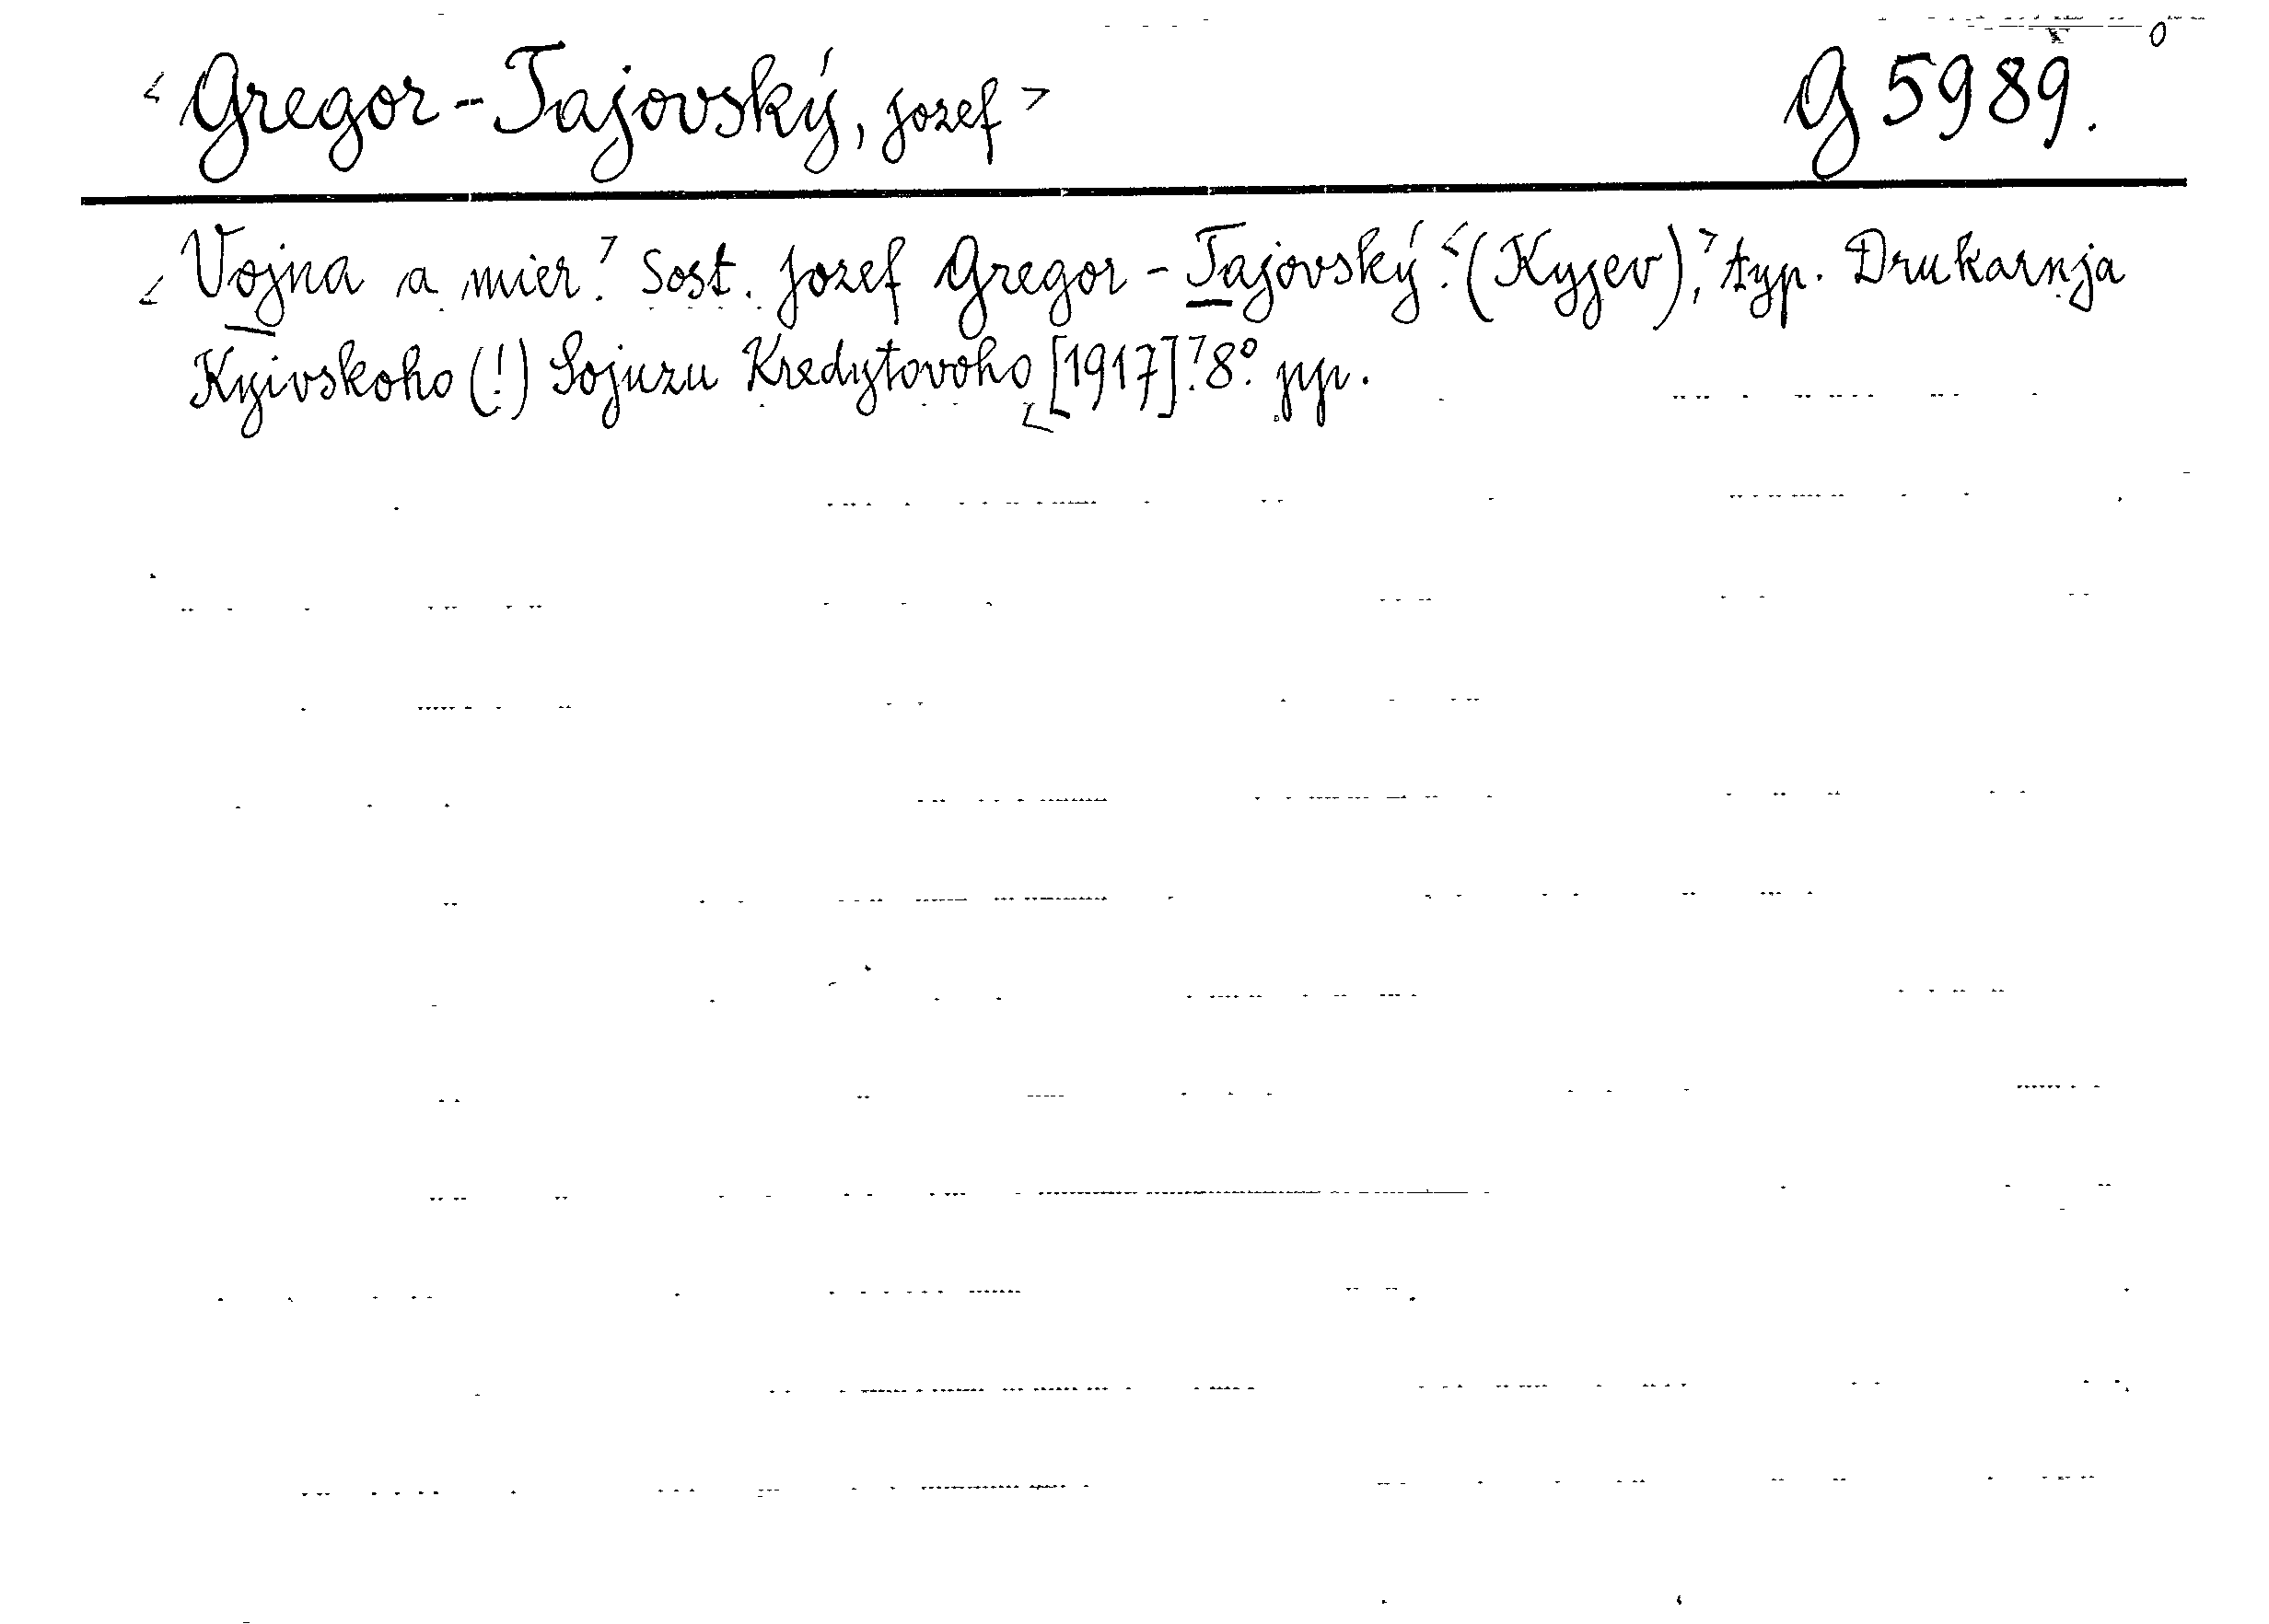 <Gregor-Tajovský, Jozef> G 5989.
<Vojna a mier.> Sost. Jozef Gregor-Tajovský. <(Kyjev),> typ. Drukarnja
Kyivskoho (!) Sojuzu Kredytovoho <[1917].> 8º. pp.